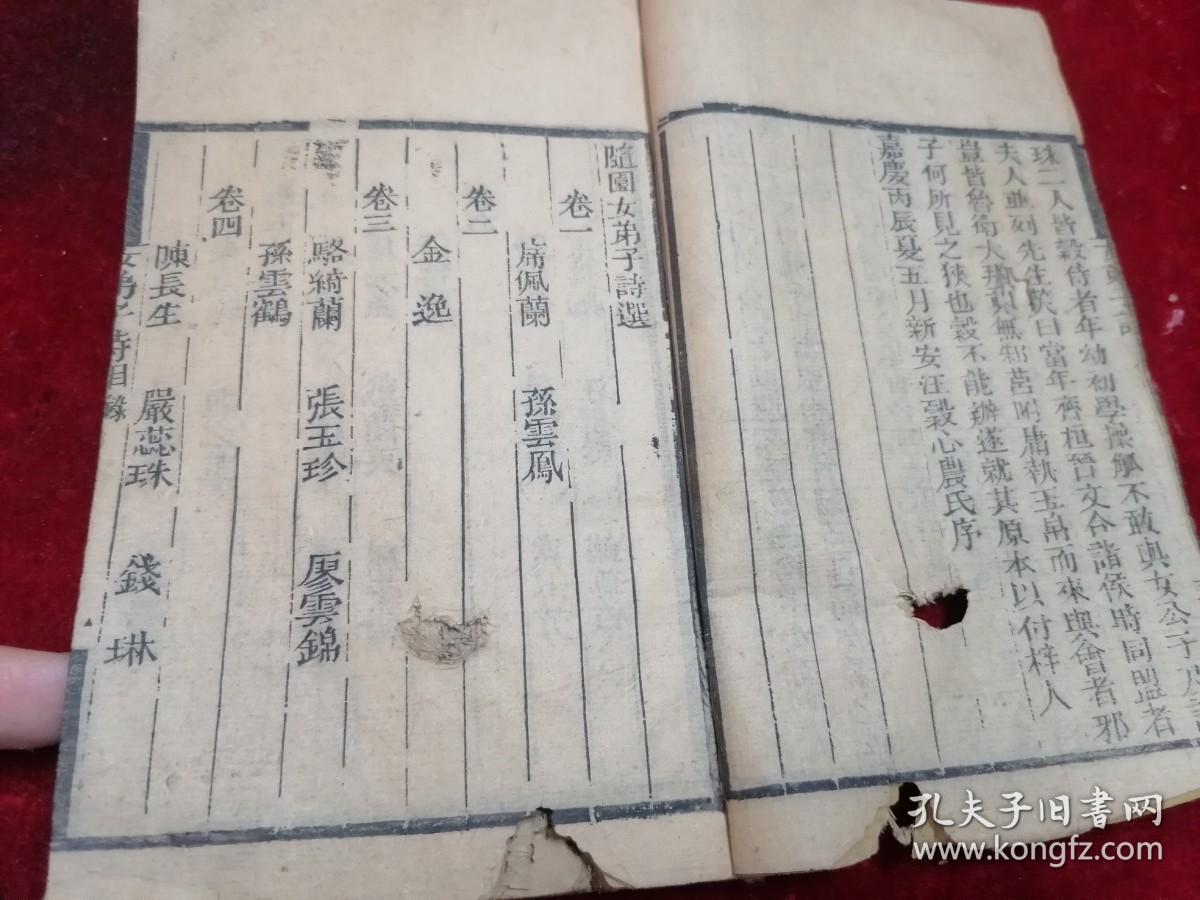 珠二人皆穀侍者年幼初學操觚不敢與女公子及
夫人並列先生於曰當年齊桓晉文合諸侯時同盟者
豈皆魯衛大邦與無邾莒附庸執玉帛而來與會者邪
子何所見之狹也穀不能辦遂就其原本以付梓人
嘉慶丙辰夏五月新安汪穀心農氏序
隨園女弟子詩選
卷一
席佩蘭 孫雲鳳
卷二
金逸
卷三
駱綺蘭 張玉珍 廖雲錦
孫雲鶴
卷四
陳長生 嚴蕊珠 錢琳
女弟子詩目錄
孔夫子旧书网
www.kongfz.com